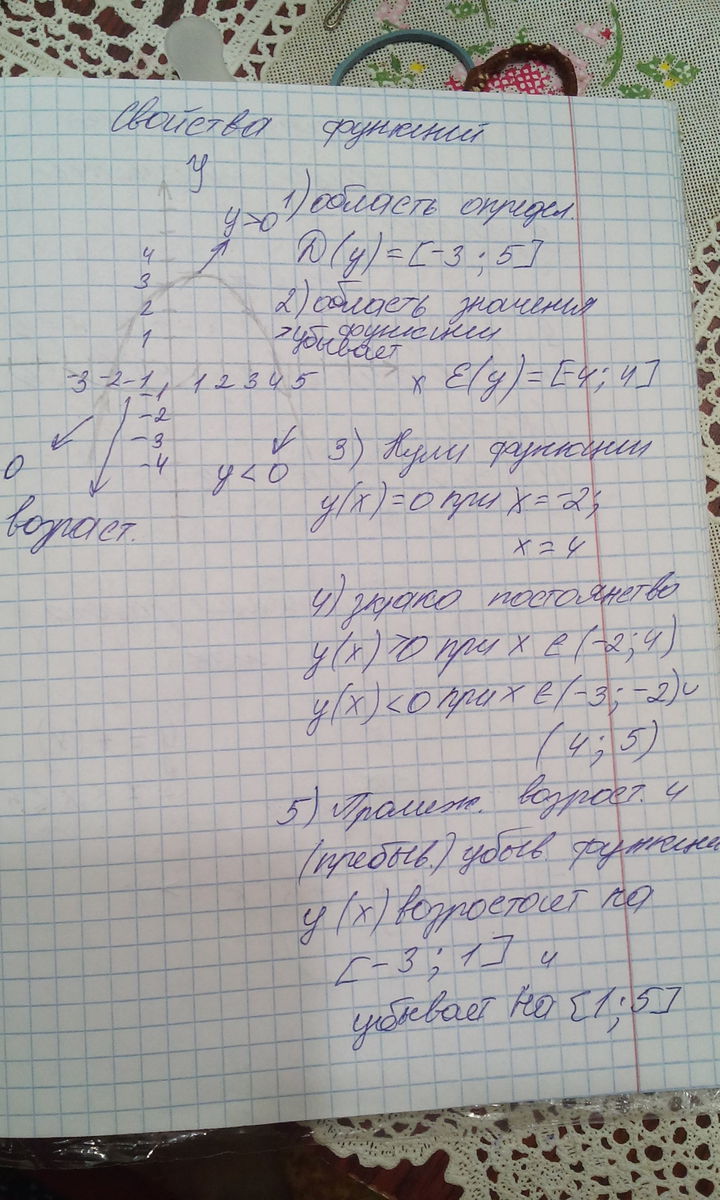 Свойства функций
у
1) область определ.
у>0
D(y)=[-3; 5]
4
3
2
1
2) область значения
функции
>убывает
-3 -2 -1 1 2 3 4 5
х E(y)=[-4; 4]
-1
-2
-3
-4
0
y<0
возраст.
3) Нули функции
y(x)=0 при x=-2;
x=4
4) знако постоянство
y(x)>0 при x ∈ (-2; 4)
y(x)<0 при x ∈ (-3; -2)∪
(4; 5)
5) Пролиж. возрост. и
(пребыв.) убыв. функции
y(x) возростает на
[-3; 1] и
убывает на [1; 5]